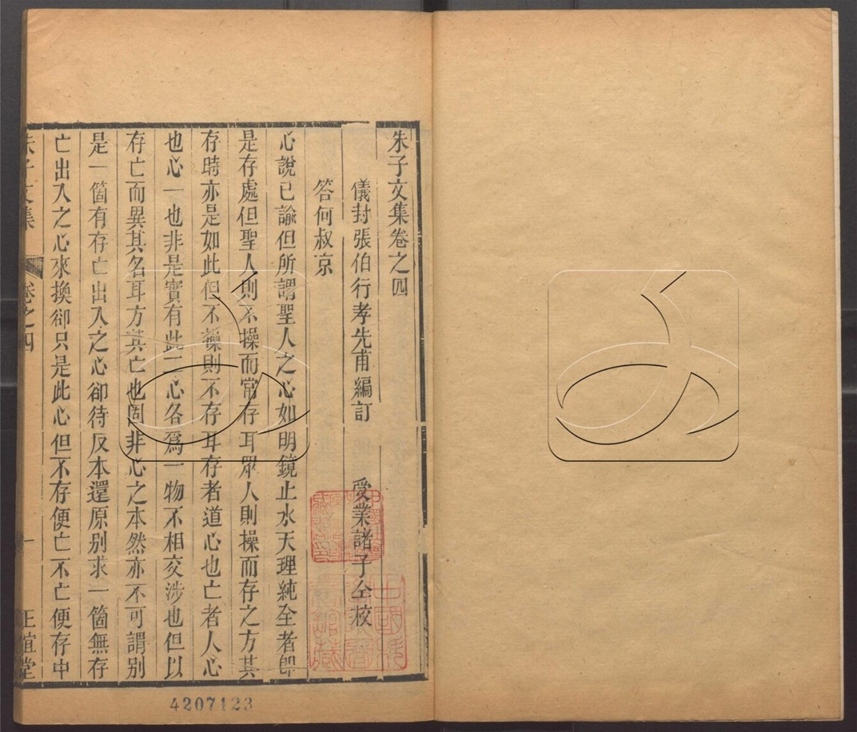 朱子文集卷之四
儀封張伯行孝先甫編訂　受業諸子仝校
答何叔京
心說已諭但所謂聖人之心如明鏡止水天理純全者卽
是存處但聖人則不操而常存耳眾人則操而存之方其
存時亦是如此但不操則不存耳存者道心也亡者人心
也心一也非是實有此二心各爲一物不相交涉也但以
存亡而異其名耳方其亡也固非心之本然亦不可謂別
是一箇有存亡出入之心卻待反本還原別求一箇無存
亡出入之心來換卻只是此心但不存便亡不亡便存中
朱子文集　卷之四　一　正誼堂
4207123